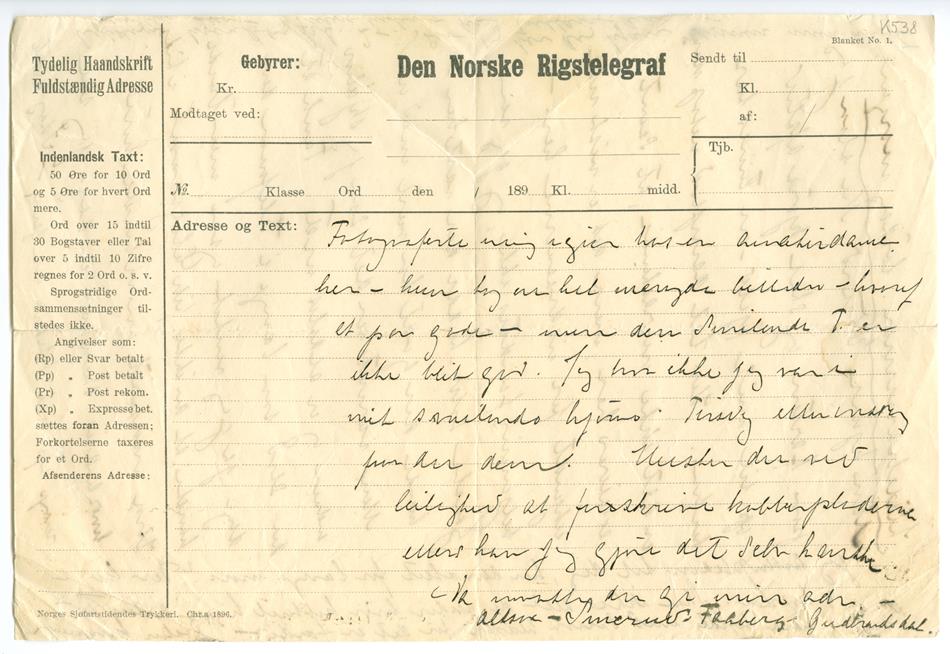 K538
Blanket No. 1.
Tydelig Haandskrift
Fuldstændig Adresse
Gebyrer:
Kr.
Modtaget ved:
Den Norske Rigstelegraf
Sendt til
Kl.
af:
Tjb.
No. Klasse Ord den / 189 Kl. midd.
Indenlandsk Taxt:
50 Øre for 10 Ord
og 5 Øre for hvert Ord
mere.
Ord over 15 indtil
30 Bogstaver eller Tal
over 5 indtil 10 Zifre
regnes for 2 Ord o. s. v.
Sprogstridige Ord-
sammensætninger til-
stedes ikke.
Angivelser som:
(Rp) eller Svar betalt
(Pp) „ Post betalt
(Pr) „ Post rekom.
(Xp) „ Expresse bet.
sættes foran Adressen;
Forkortelserne taxeres
for et Ord.
Afsenderens Adresse:
Adresse og Text:
Fotograferte mig igjen hos en amatørdame
her – hun tog en hel mengde billeder – hvoraf
et par gode – men den smilende T. er
ikke blit god. Jeg tror ikke jeg var i
mit smilende hjørne. Tirsdag eller onsdag
faar du dem. Husker du ved
leilighed at forskrive kobberpladerne
ellers kan jeg gjøre det selv kanske
du gi min adr. –
altsaa – Faaberg Gudbrandsdal.
Norges Sjøfartstidendes Trykkeri. Chr.a 1896.